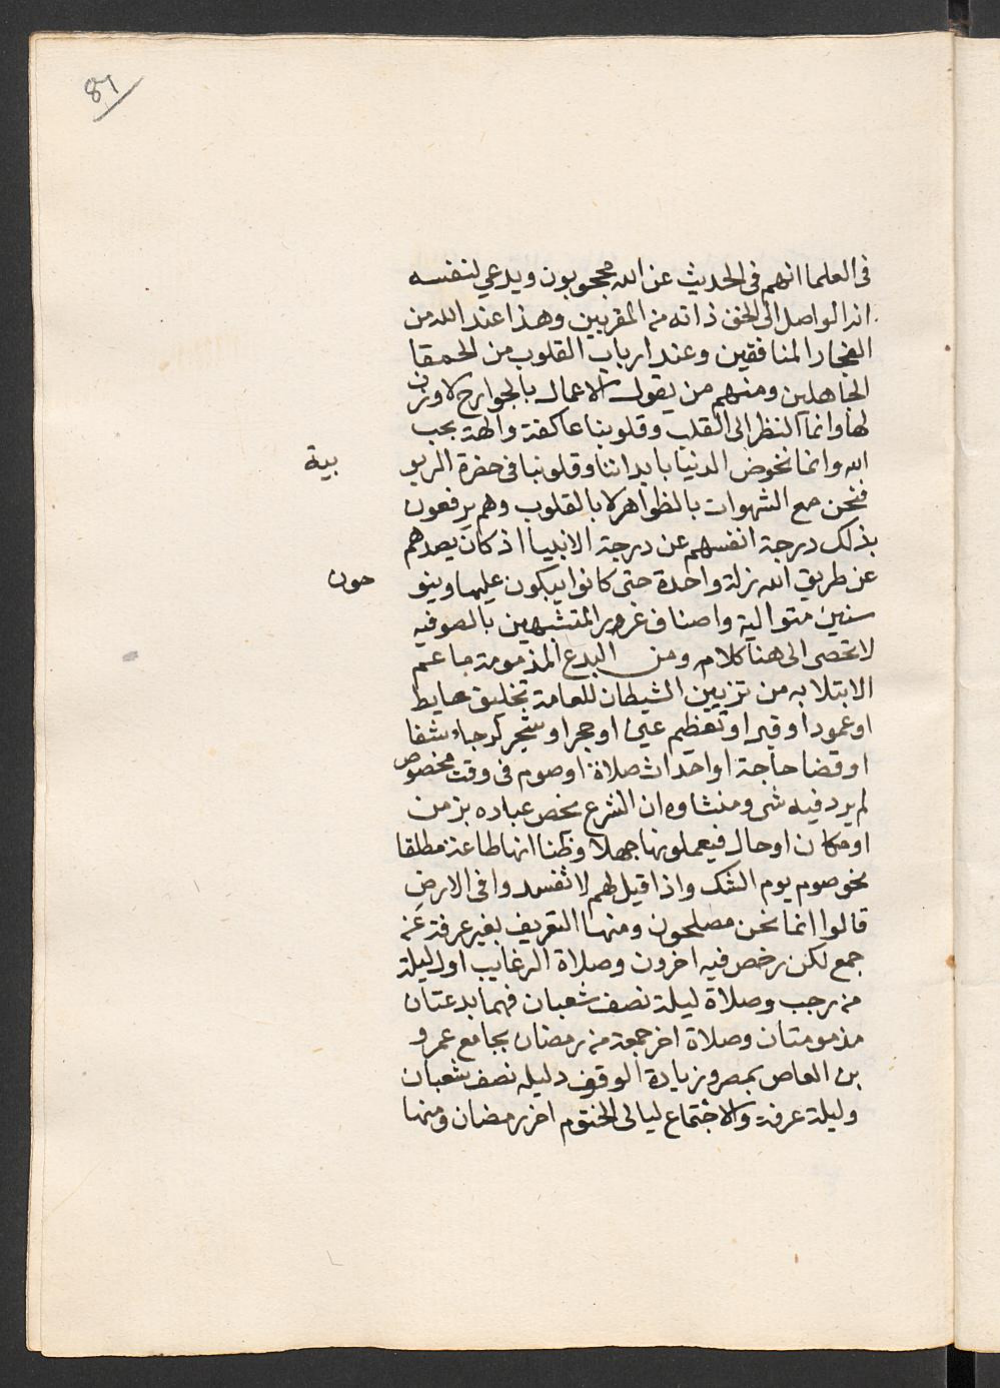 81
فى العلما انهم فى الحديث عن الله محجوبون ويدعي لنفسه
انه الواصل الى الحق ذاته من المقربين وهذا عند الله من
الفجار المنافقين وعند ارباب القلوب من الحمقا
الجاهلين ومنهم من يقول الاعمال بالجوارح لا وزن
لها وانما النظر الى القلب وقلوبنا عاكفة والهة بحب
الله وانما نخوض الدنيا بابداننا وقلوبنا فى حضرة الربو بية
فنحن مع الشهوات بالظواهر لا بالقلوب وهم يرفعون
بذلك درجة انفسهم عن درجة الانبيا اذ كان يصدهم
عن طريق الله زلة واحدة حتى كانوا يبكون عليها وينو حون
سنين متوالية واصناف غرور المتشبهين بالصوفيه
لا تحصى الى هنا كلام ومن البدع المذمومة ما عم
الابتلا به من تزيين الشيطان للعامة تخليق حايط
او عمود او قبر او تعظيم عين او حجر او شجر لرجاء شفا
او قضا حاجة او احداث صلاة او صوم فى وقت مخصوص
لم يرد فيه شى ومنشاوه ان الشرع يخص عباده بزمن
او مكان او حال فيعملونها جهلا وظنا انها طاعة مطلقا
نحو صوم يوم الشك واذا قيل لهم لا تفسدوا فى الارض
قالوا انما نحن مصلحون ومنها التعريف بغير عرفة عنه
جمع لكن رخص فيه اخرون وصلاة الرغايب اول ليلة
من رجب وصلاة ليلة نصف شعبان فهما بدعتان
مذمومتان وصلاة اخر جمعة من رمضان بجامع عمرو
بن العاص بمصر وزيادة الوقف دليله نصف شعبان
وليلة عرفة والاجتماع ليالى الختوم اخر رمضان ومنها